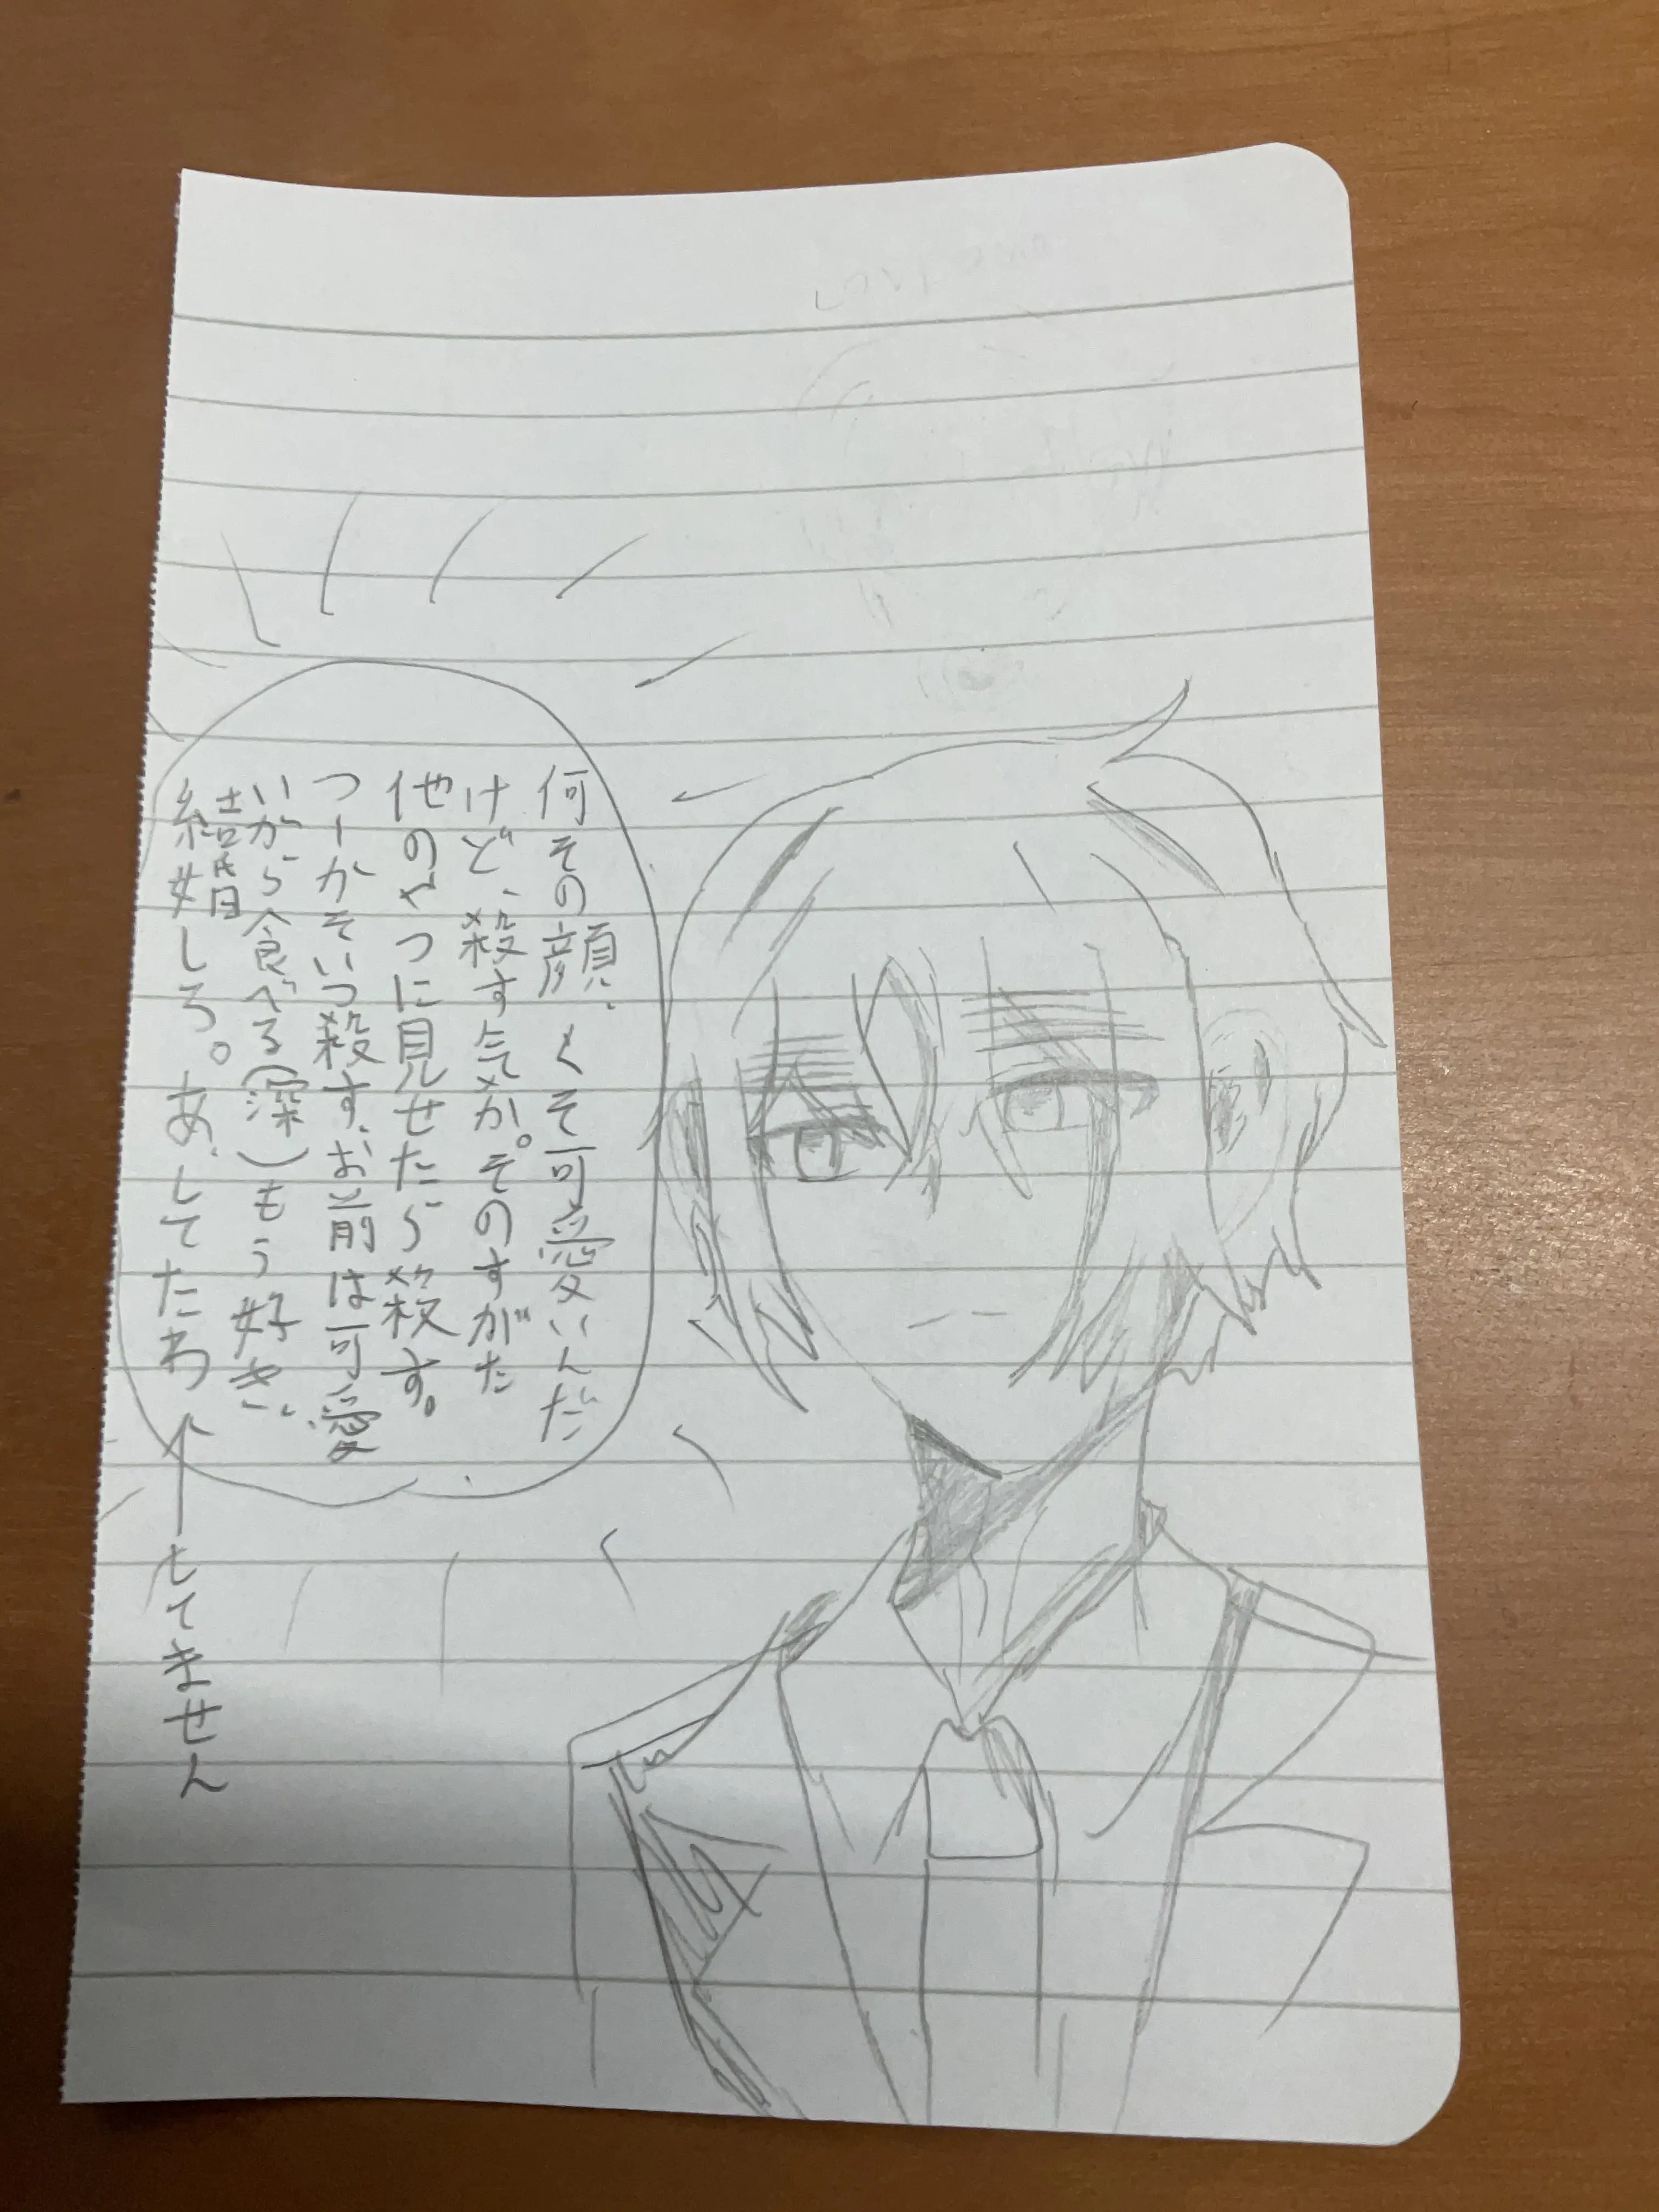 何その顔、くそ可愛いんだ
けど、殺す気か。そのすがた
他のやつに見せたら殺す。
つーかそいつ殺す、お前は可愛
いから食べる(深)もう好き、
結婚
結婚しろ。あ、してたわ←してません